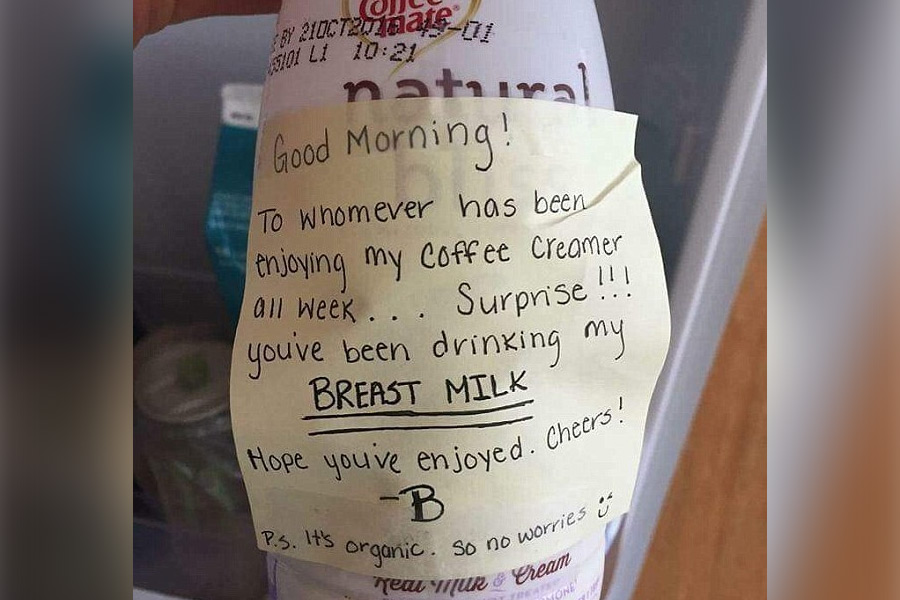 Coffee
mate
BY 21OCT2016 45-01
35101 L1 10:21
natural
Good Morning!
To whomever has been
enjoying my coffee creamer
all week . . . Surprise!!!
you've been drinking my
BREAST MILK
Hope you've enjoyed. Cheers!
-B
P.s. It's organic. So no worries :)
Real Milk & Cream